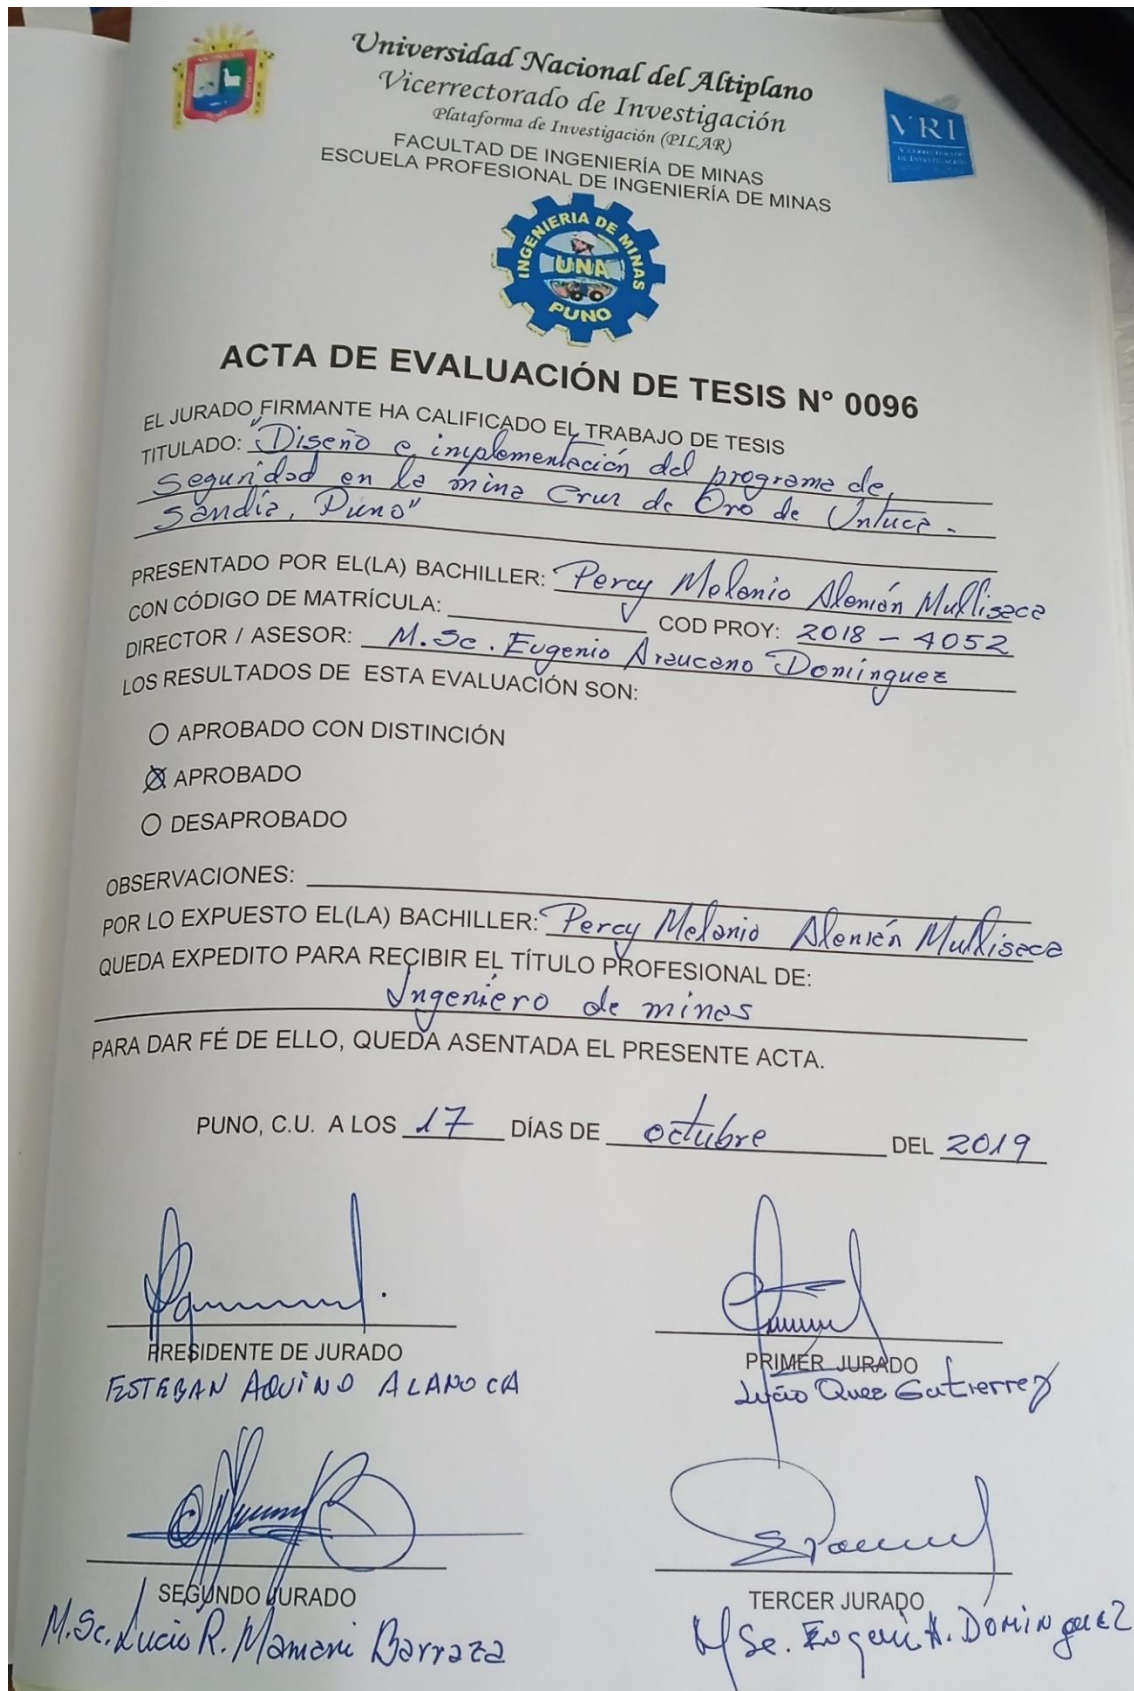 Universidad Nacional del Altiplano
Vicerrectorado de Investigación
Plataforma de Investigación (PILAR)
FACULTAD DE INGENIERÍA DE MINAS
ESCUELA PROFESIONAL DE INGENIERÍA DE MINAS
VRI
VICERRECTORADO
DE INVESTIGACIÓN
INGENIERIA DE MINAS
UNA
PUNO
ACTA DE EVALUACIÓN DE TESIS N° 0096
EL JURADO FIRMANTE HA CALIFICADO EL TRABAJO DE TESIS
TITULADO: "Diseño e implementación del programa de
Seguridad en la mina Cruz de Oro de Untuca -
Sandia, Puno"
PRESENTADO POR EL(LA) BACHILLER: Percy Melanio Alemán Mulliseca
CON CÓDIGO DE MATRÍCULA: COD PROY: 2018 - 4052
DIRECTOR / ASESOR: M.Sc. Eugenio Araucano Domínguez
LOS RESULTADOS DE ESTA EVALUACIÓN SON:
APROBADO CON DISTINCIÓN
APROBADO
DESAPROBADO
OBSERVACIONES:
POR LO EXPUESTO EL(LA) BACHILLER: Percy Melanio Alemán Mulliseca
QUEDA EXPEDITO PARA RECIBIR EL TÍTULO PROFESIONAL DE:
Ingeniero de minas
PARA DAR FÉ DE ELLO, QUEDA ASENTADA EL PRESENTE ACTA.
PUNO, C.U. A LOS 17 DÍAS DE octubre DEL 2019
PRESIDENTE DE JURADO
ESTEBAN AQUINO ALANOCA
PRIMER JURADO
Lucio Quea Gutierrez
SEGUNDO JURADO
M.Sc. Lucio R. Mamani Barraza
TERCER JURADO
M.Sc. Eugenio A. Dominguez